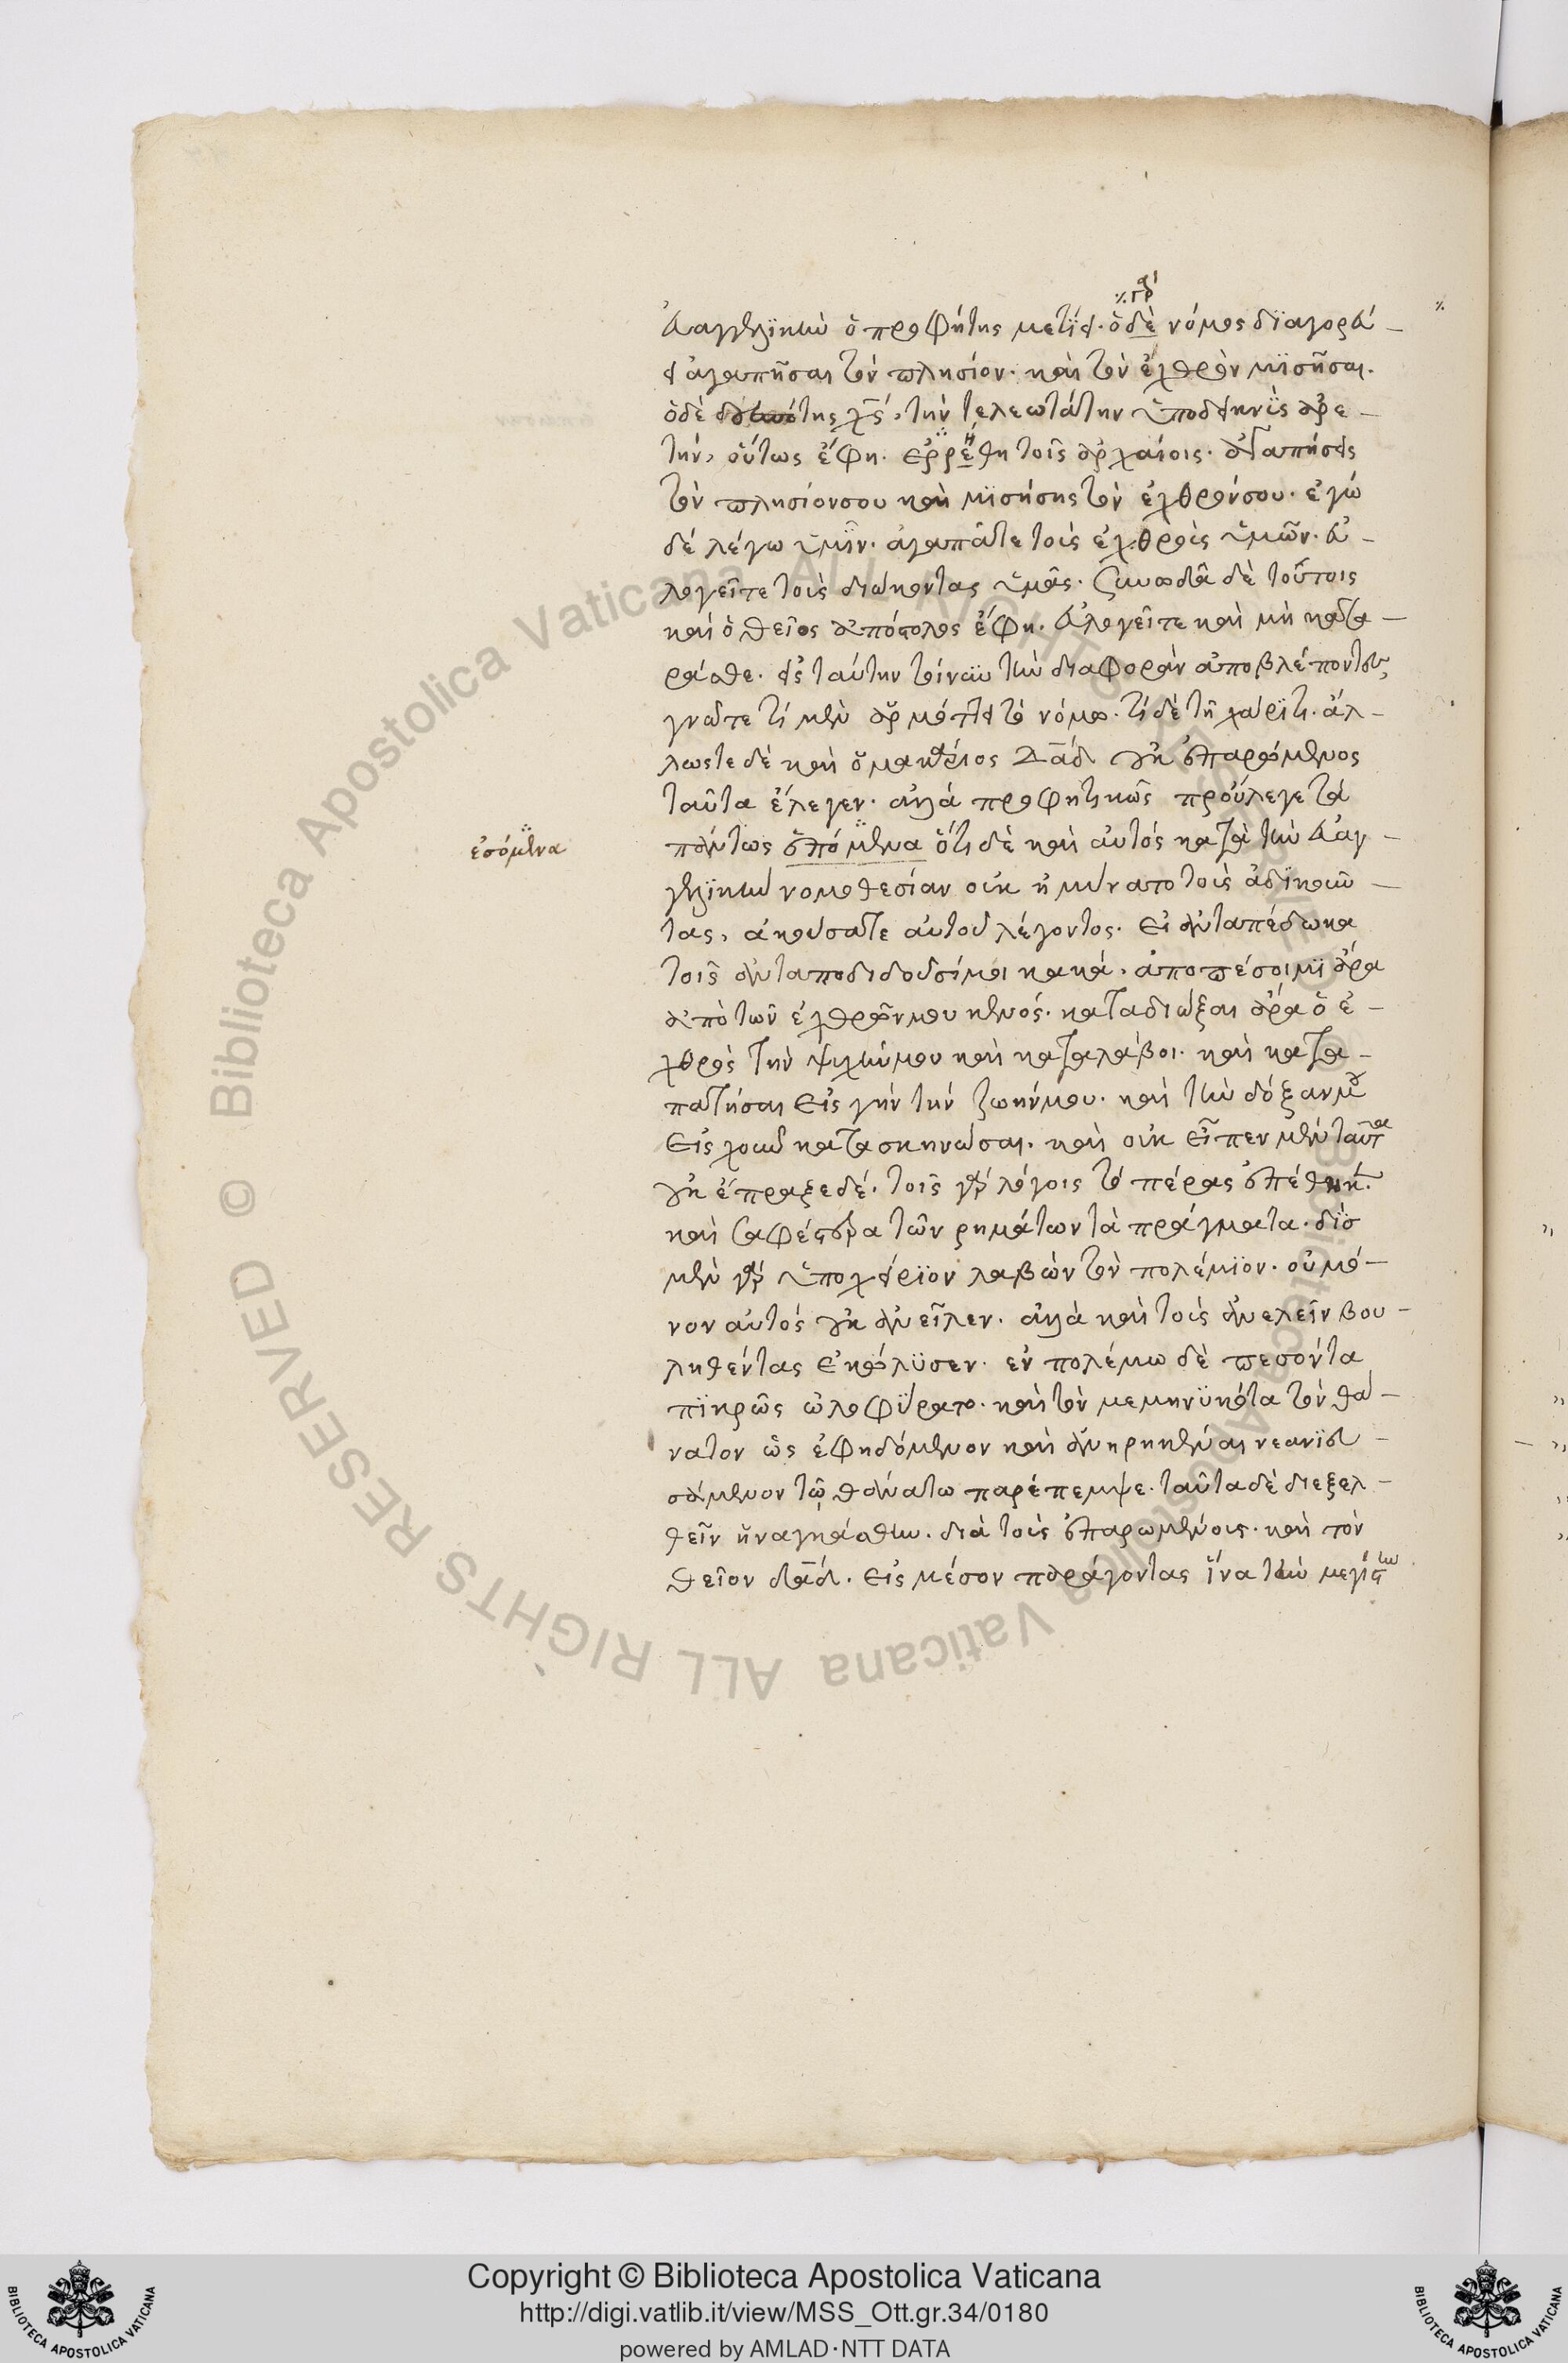 γάρ
εὐαγγελϊκὴν ὁ προφήτης μετίει· ὁ δὲ νόμος διαγορεύ-
ει ἀγαπῆσαι τὸν πλησίον· καὶ τὸν ἐχθρὸν μϊσῆσαι.
ὁ δὲ δεσπότης χς, τὴν τελεωτάτην ὑποδεικνὺς ἀρε-
τὴν, οὕτως ἔφη. ἐρρέθη τοῖς ἀρχαίοις. ἀγαπήσεις
τὸν πλησίον σου καὶ μϊσήσης τὸν ἐχθρόν σου. ἐγὼ
δὲ λέγω ὑμῖν. ἀγαπᾶτε τοὺς ἐχθροὺς ὑμῶν. εὐ-
λογεῖτε τοὺς διώκοντας ὑμᾶς. συνῳδᾶ δὲ τούτοις
καὶ ὁ θεῖος ἀπόστολος ἔφη. εὐλογεῖτε καὶ μὴ κατα-
ρᾶσθε. εἰς ταύτην τοίνυν τὴν διαφορὰν ἀποβλέποντες,
γνῶτε τί μὲν ἁρμόττει τῶ νόμω. τί δὲ τῆ χάρϊτι. ἄλ-
λωστε δὲ καὶ ὁ μακάριος δᾱδ οὐκ ἐπαρώμενος
ταῦτα ἔλεγεν. ἀλλὰ προφητικῶς προύλεγε τὰ
πάντως ἐπόμενα ὅτι δὲ καὶ αὐτὸς κατὰ τὴν εὐαγ-
ἐσόμενα
γελϊκὴν νομοθεσίαν οὐκ ἠμύνατο τοὺς ἀδϊκοῦν-
τας, ἀκούσατε αὐτοῦ λέγοντος. εἰ ἀνταπέδωκα
τοῖς ἀνταποδιδοῦσί μοι κακά. ἀποπέσοιμϊ ἄρα
ἀπὸ τῶν ἐχθρῶν μου κενός. καταδιώξαι ἄρα ὁ ἐ-
χθρὸς τὴν ψυχήν μου καὶ καταλάβοι. καὶ κατα-
πατῆσαι εἰς γῆν τὴν ζωήν μου. καὶ τὴν δόξαν μου
εἰς χοῦν κατασκηνώσαι. καὶ οὐκ εἶπεν μὲν ταῦτα
οὐκ ἔπραξε δέ. τοῖς γὰρ λόγοις τὸ πέρας ἐπέθηκε.
καὶ σαφέστερα τῶν ρημάτων τὰ πράγματα. δὶς
μὲν γὰρ ὑποχείρϊον λαβὼν τὸν πολέμϊον. οὐ μό-
νον αὐτὸς οὐκ ἀνεῖλεν. ἀλλὰ καὶ τοὺς ἀνελεῖν βου-
ληθέντας ἐκώλϋσεν. ἐν πολέμω δὲ πεσόντα
πϊκρῶς ὠλοφύρατο. καὶ τὸν μεμηνϋκότα τὸν θά-
νατον ὡς ἐφηδόμενον καὶ ἀνηρηκέναι νεανϊευ-
σάμενον τῷ θανάτω παρέπεμψε. ταῦτα δὲ διεξελ-
θεῖν ἠναγκάσθην. διὰ τοὺς ἐπαρωμένους. καὶ τὸν
θεῖον δᾱδ. εἰς μέσον παράγοντας ἵνα τὴν μεγίστην